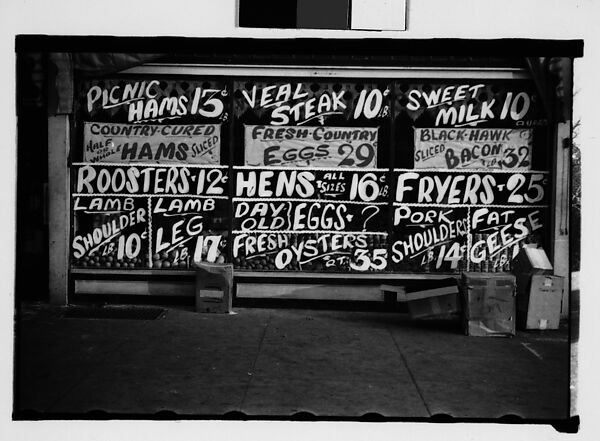 PICNIC
HAMS 13¢ LB.
COUNTRY-CURED
HALF OR WHOLE HAMS SLICED
ROOSTERS-12¢
LAMB
SHOULDER
LB. 10¢
LAMB
LEG
LB. 17¢
VEAL
STEAK 10¢ LB.
FRESH-COUNTRY
EGGS 29¢
HENS ALL SIZES 16¢ LB.
DAY OLD EGGS-?
FRESH OYSTERS
QT. 35¢
SWEET
MILK 10¢
QUART
BLACK-HAWK
SLICED BACON 32¢
FRYERS-25¢
PORK
SHOULDERS
LB. 14¢
FAT
GEESE
LB.